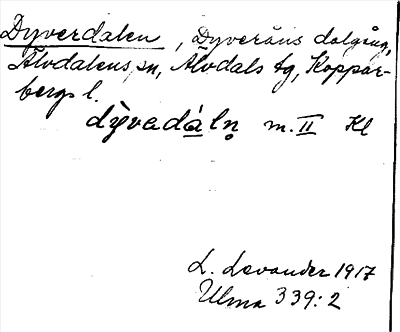 Dyverdalen, Dyveråns dalgång,
Älvdalens sn, Älvdals tg, Koppar-
bergs l.
dyvadáln̥ m. II Kl
L. Levander 1917
Ulma 339:2